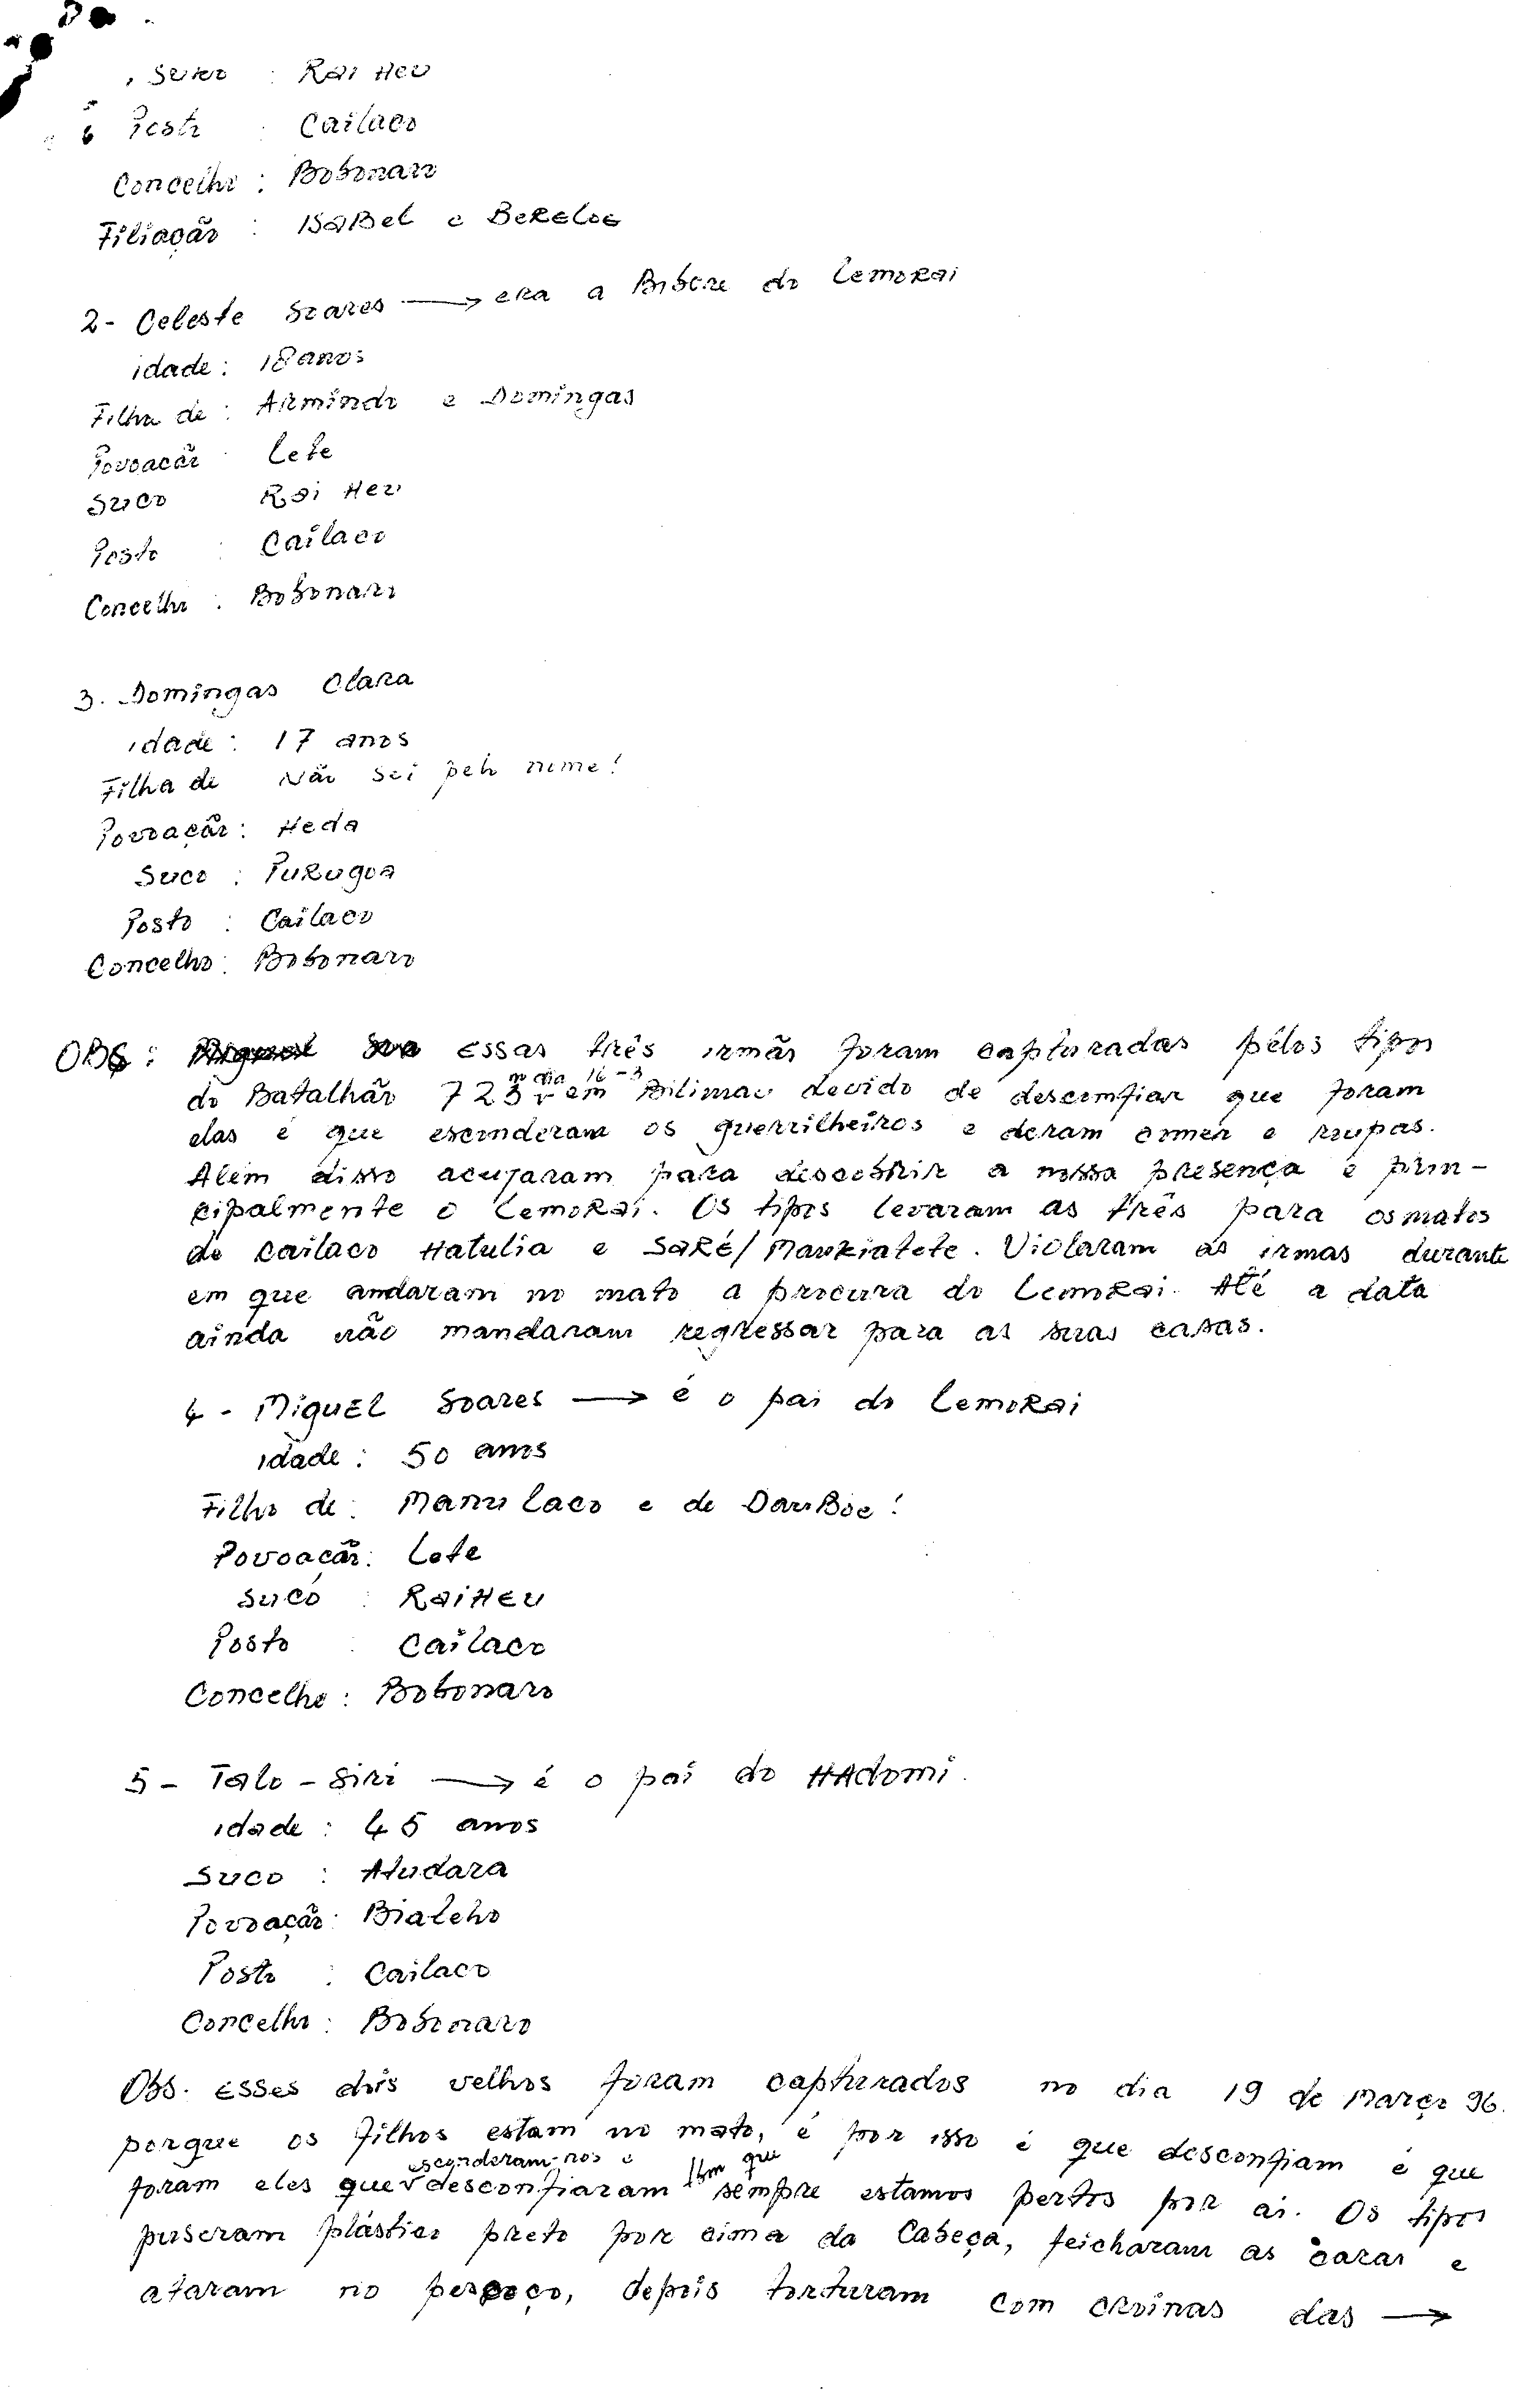 Suco : Rai Heu
Posto : Cailaco
Concelho : Bobonaro
Filiação : ISaBel e BeReLoe
2- Celeste Soares → era a do LemoRai
idade : 18 anos
Filha de : Armindo e Domingas
Povoacão : Lete
Suco Rai Heu
Posto : Cailaco
Concelho : Bobonaro
3. Domingas Clara
idade : 17 anos
Filha de Não sei pelo nome!
Povoação : Heda
Suco : PuRugoa
Posto : Cailaco
Concelho : Bobonaro
OBS : essas três irmãs foram capturadas pêlos tipos
no dia 16-3
do Batalhão 723 em Bilimau devido de desconfiar que foram
elas é que esconderam os guerrilheiros e deram comer e roupas.
Além disso acusaram para descobrir a nossa presença e prin-
cipalmente o LemoRai. Os tipos levaram as três para os matos
de Cailaco Hatulia e SaRé/Maukiatete. Violaram as irmas durante
em que andaram no mato a procura do LemoRai. Até a data
ainda não mandaram regressar para as suas casas.
4 - MiguEL Soares → é o pai do LemoRai
idade : 50 anos
Filho de : Manu Laco e de DauBoe!
Povoacão : Lete
Sucó : RaiHeu
Posto : Cailaco
Concelho : Bobonaro
5 - Talo-Siri → é o pai do HAdomi.
idade : 45 anos
Suco : Atudara
Povoação : Bialeho
Posto : Cailaco
Concelho : Bobonaro
Obs. Esses dois velhos foram capturados no dia 19 de Março 96.
porque os filhos estam no mato, é por isso é que desconfiam é que
esconderam-nos e tbm que
foram eles que desconfiaram sempre estamos pertos por ai. Os tipos
puseram plástico preto por cima da Cabeça, feicharam as caras e
ataram no pescoço, depois torturam com croinas das →